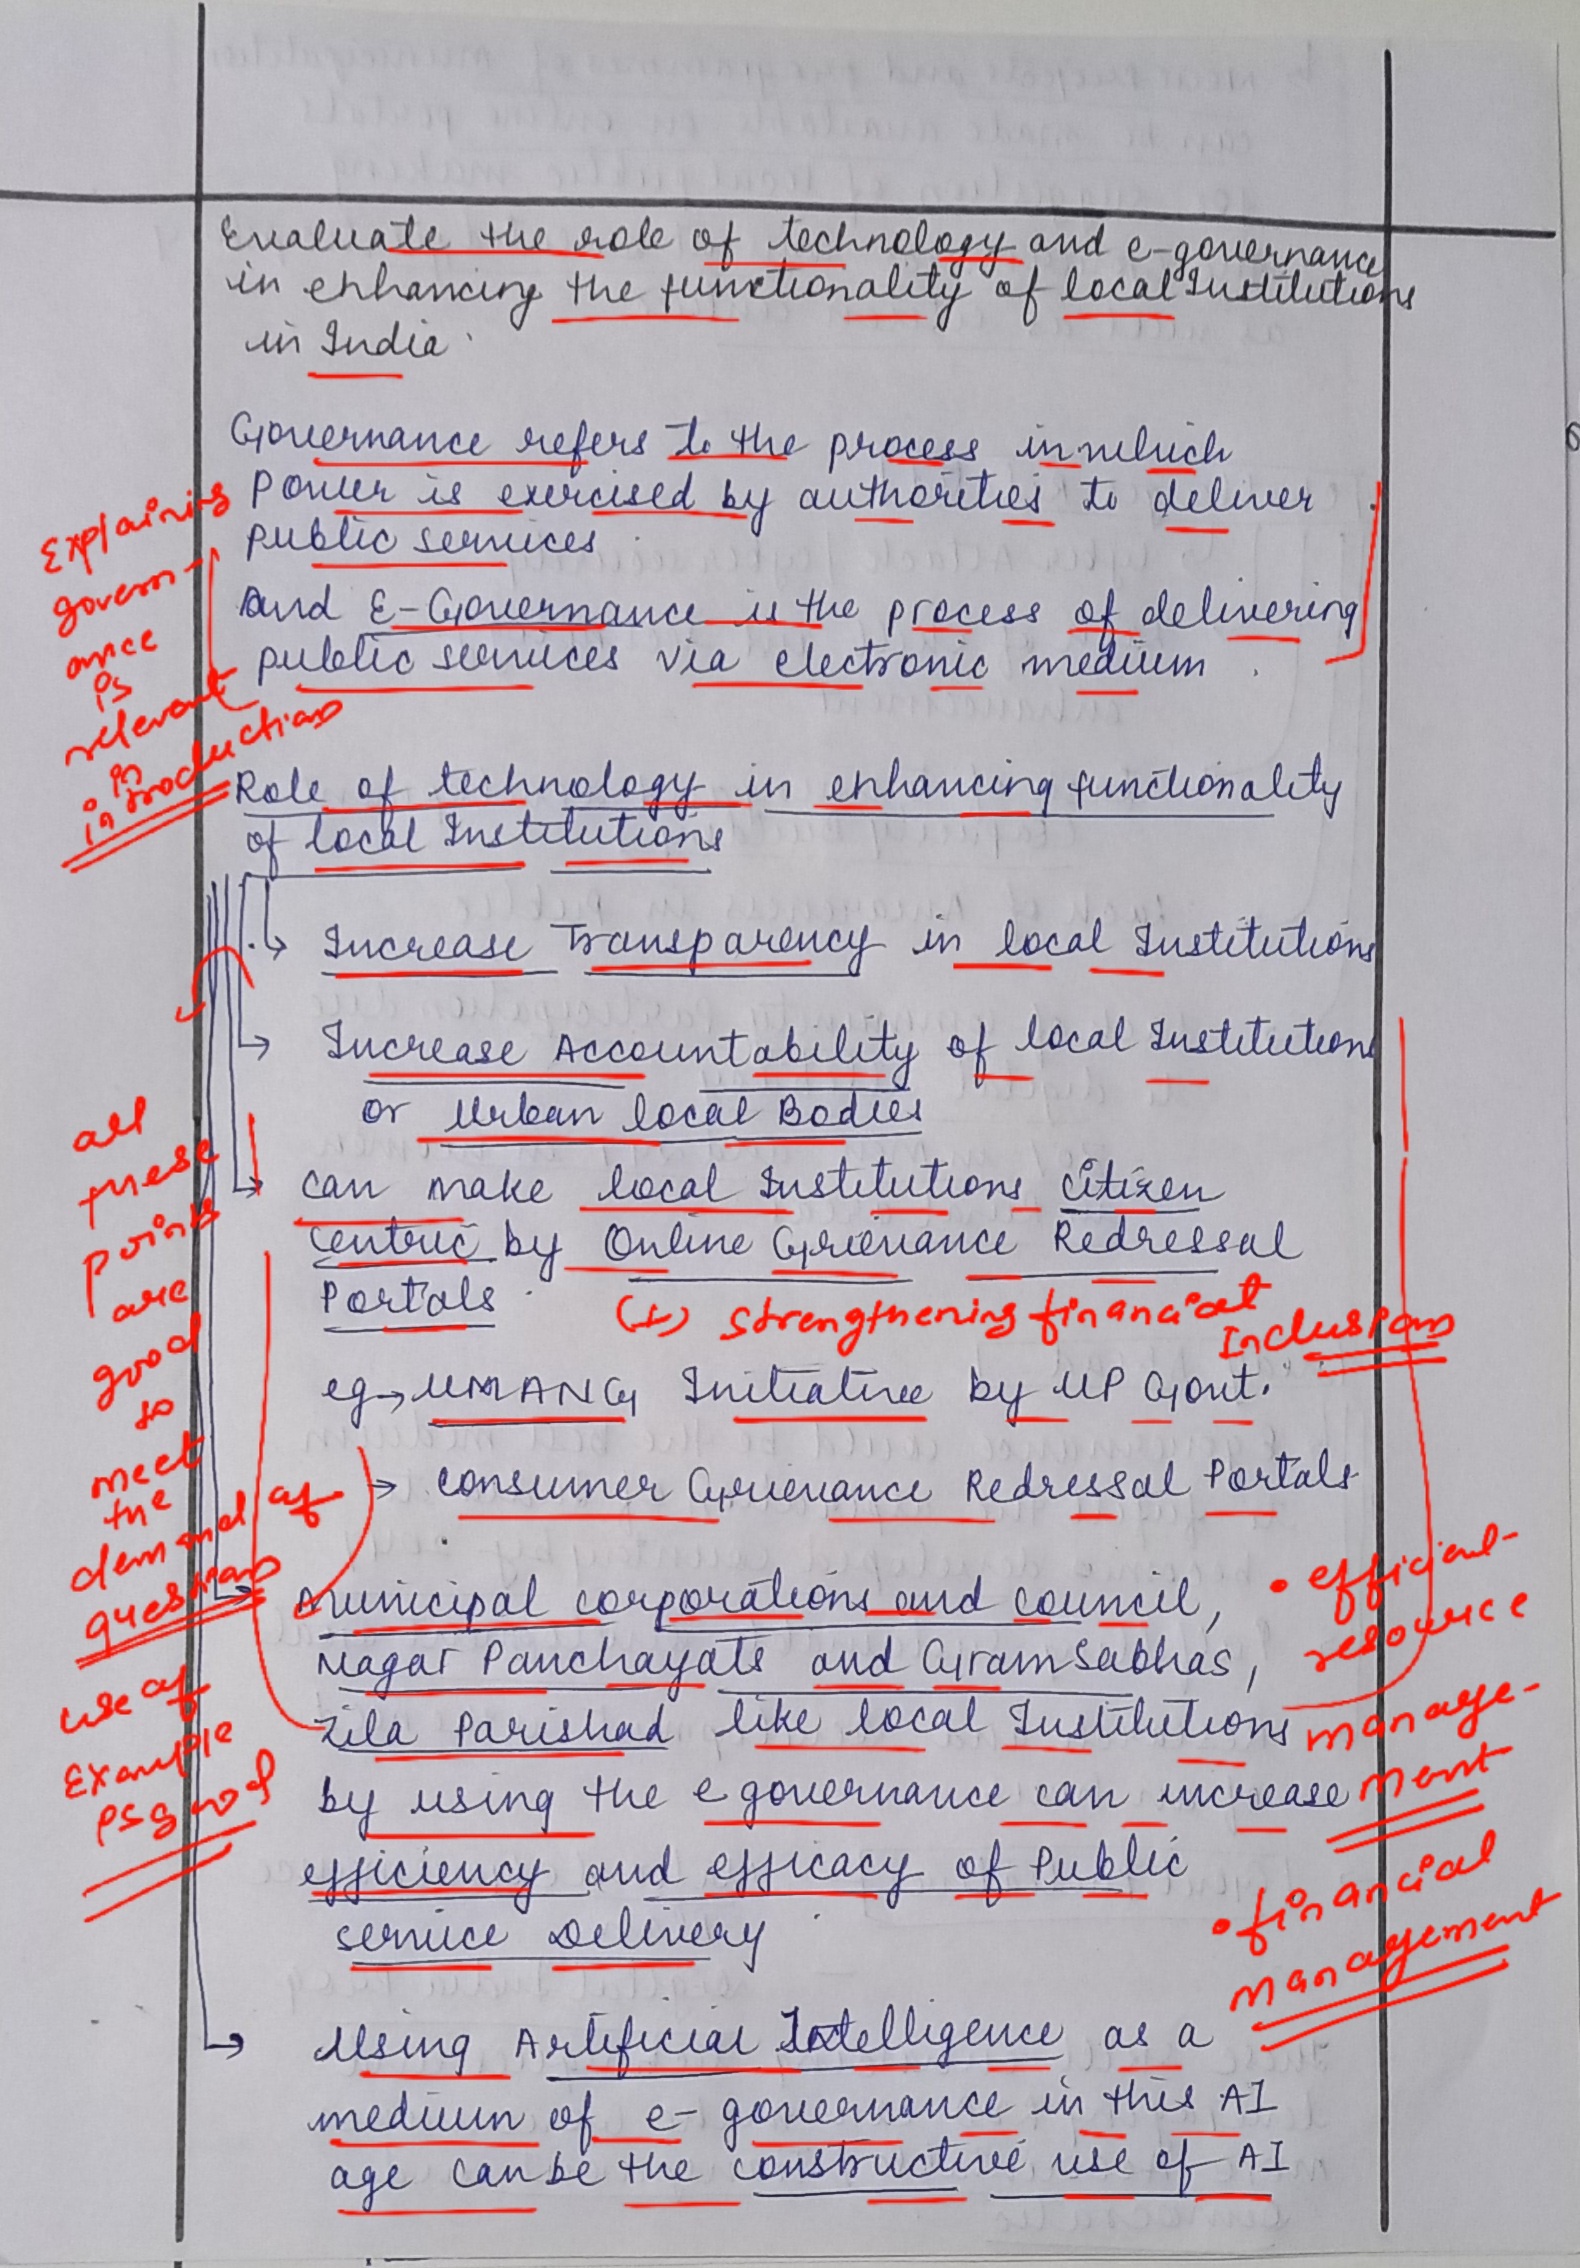 Evaluate the role of technology and e-governance
in enhancing the functionality of local Institutions
in India.
Governance refers to the process in which
Power is exercised by authorities to deliver
public services.
And E-Governance is the process of delivering
public services via electronic medium.
Explaining
govern-
ance
is
relevant
in
introduction
Role of technology in enhancing functionality
of local Institutions
Increase Transparency in local Institutions
Increase Accountability of local Institution
or Urban local Bodies
can make local Institutions citizen
centric by Online Grievance Redressal
Portals.
(+) strengthening financial
Inclusion
eg → UMANG Initiative by UP Govt.
→ consumer Grievance Redressal Portals
all
these
points
are
good
to
meet
the
demand of
question
Municipal corporations and council,
Nagar Panchayats and Gram Sabhas,
Zila Parishad like local Institutions
by using the e governance can increase
efficiency and efficacy of Public
service Delivery.
• efficient
resource
manage-
ment
• financial
management
use of
Example
is good
Using Artificial Intelligence as a
medium of e-governance in this AI
age can be the constructive use of AI